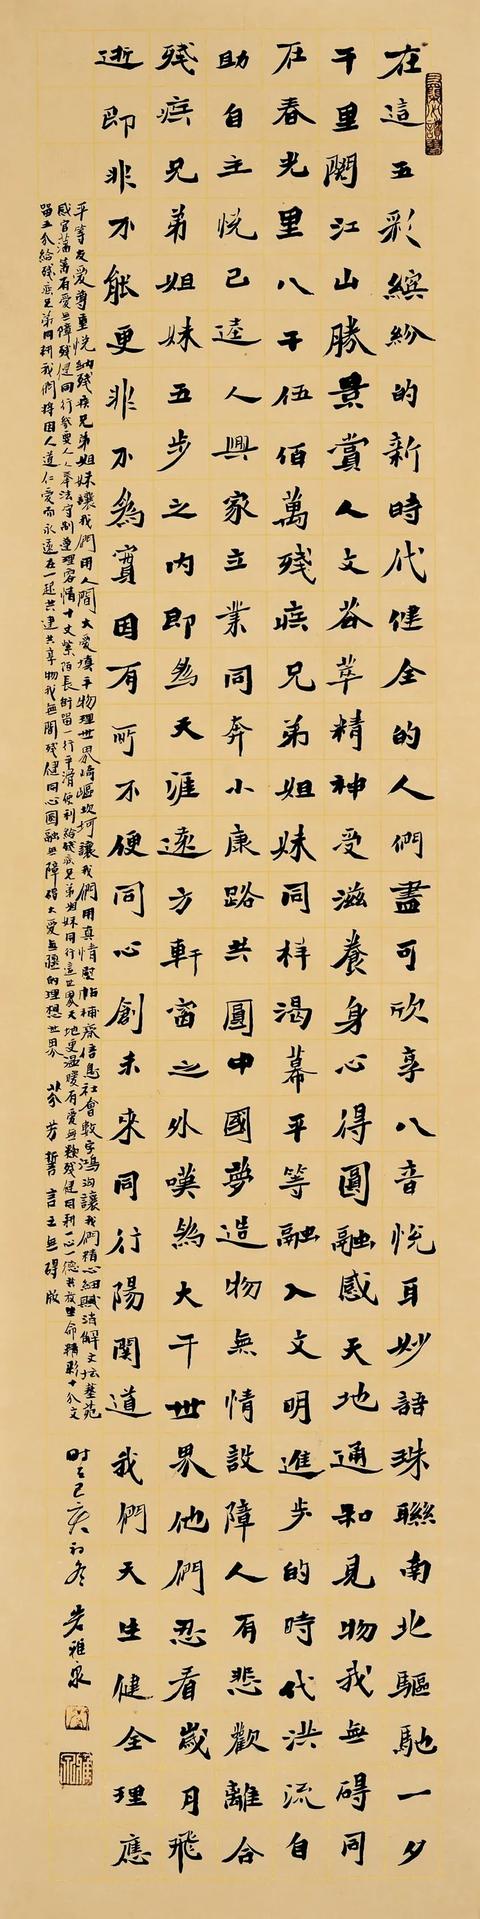 在這五彩繽紛的新時代健全的人們盡可欣享八音悅耳妙語珠聯南北驅馳一夕
千里閱江山勝景賞人文薈萃精神受滋養身心得圓融感天地通和見物我無碍同
在春光里八千伍佰萬殘疾兄弟姐妹同样渴幕平等融入文明進步的時代洪流自
助自主悅己達人興家立業同奔小康路共圓中國夢造物無情設障人有悲歡離合
殘疾兄弟姐妹五步之内即為天涯遠方軒窗之外嘆為大千世界他們忍看歲月飛
逝即非不能更非不為實因有所不便同心創未來同行陽関道我們天生健全理應
平等友愛尊重悅納殘疾兄弟姐妹讓我們用人間大愛填平物理世界崎嶇坎坷讓我們用真情墊帖補齊信息社會數字鴻沟讓我們精心細賦诗解文坛藝苑
感官藩篱有愛無障殘健同行參要人人奉法守制遵理容情十丈紫陌長街留一行平滑便利給殘疾兄弟姐妹同行這世界天地更温暖有愛無類殘健同利一心一德共放生命精彩十分文
留五分給殘疾兄弟同耕我們將因人道仁愛而永遠在一起共建共享物我無閡殘健同心圓融無障碍大愛無疆的理想世界 芬芳誓言王無碍版
時在己亥初冬 岩雅泉